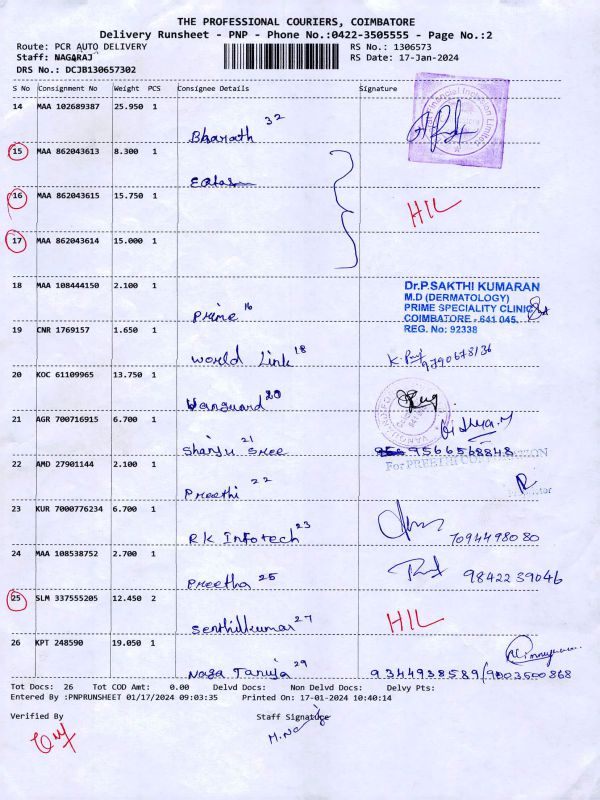 THE PROFESSIONAL COURIERS, COIMBATORE
Delivery Runsheet - PNP - Phone No.:0422-3505555 - Page No.:2
Route: PCR AUTO DELIVERY RS No.: 1306573
Staff: NAGARAJ RS Date: 17-Jan-2024
DRS No.: DCJB130657302
S No Consignment No Weight PCS Consignee Details Signature
14 MAA 102689387 25.950 1
Bharath 32
15 MAA 862043613 8.300 1
16 MAA 862043615 15.750 1
HIL
17 MAA 862043614 15.000 1
18 MAA 108444150 2.100 1
Dr.P.SAKTHI KUMARAN
M.D (DERMATOLOGY)
PRIME SPECIALITY CLINIC
COIMBATORE - 641 045.
REG. No: 92338
Prime 16
19 CNR 1769157 1.650 1
World Link 18
20 KOC 61109965 13.750 1
Vanguard 20
21 AGR 700716915 6.700 1
Vidhya.M
Shanju Sree 21 9566568848
22 AMD 27901144 2.100 1
For PREETHI CORPORATION
Preethi 22
Proprietor
23 KUR 7000776234 6.700 1
RK Infotech 23 7094498080
24 MAA 108538752 2.700 1
Preetha 25 9842239046
25 SLM 337555205 12.450 2
Senthilkumar 27 HIL
26 KPT 248590 19.050 1
Naga Tanuja 29 9344938589/9003500868
Tot Docs: 26 Tot COD Amt: 0.00 Delvd Docs: Non Delvd Docs: Delvy Pts:
Entered By :PNPRUNSHEET 01/17/2024 09:03:35 Printed On: 17-01-2024 10:40:14
Verified By Staff Signature